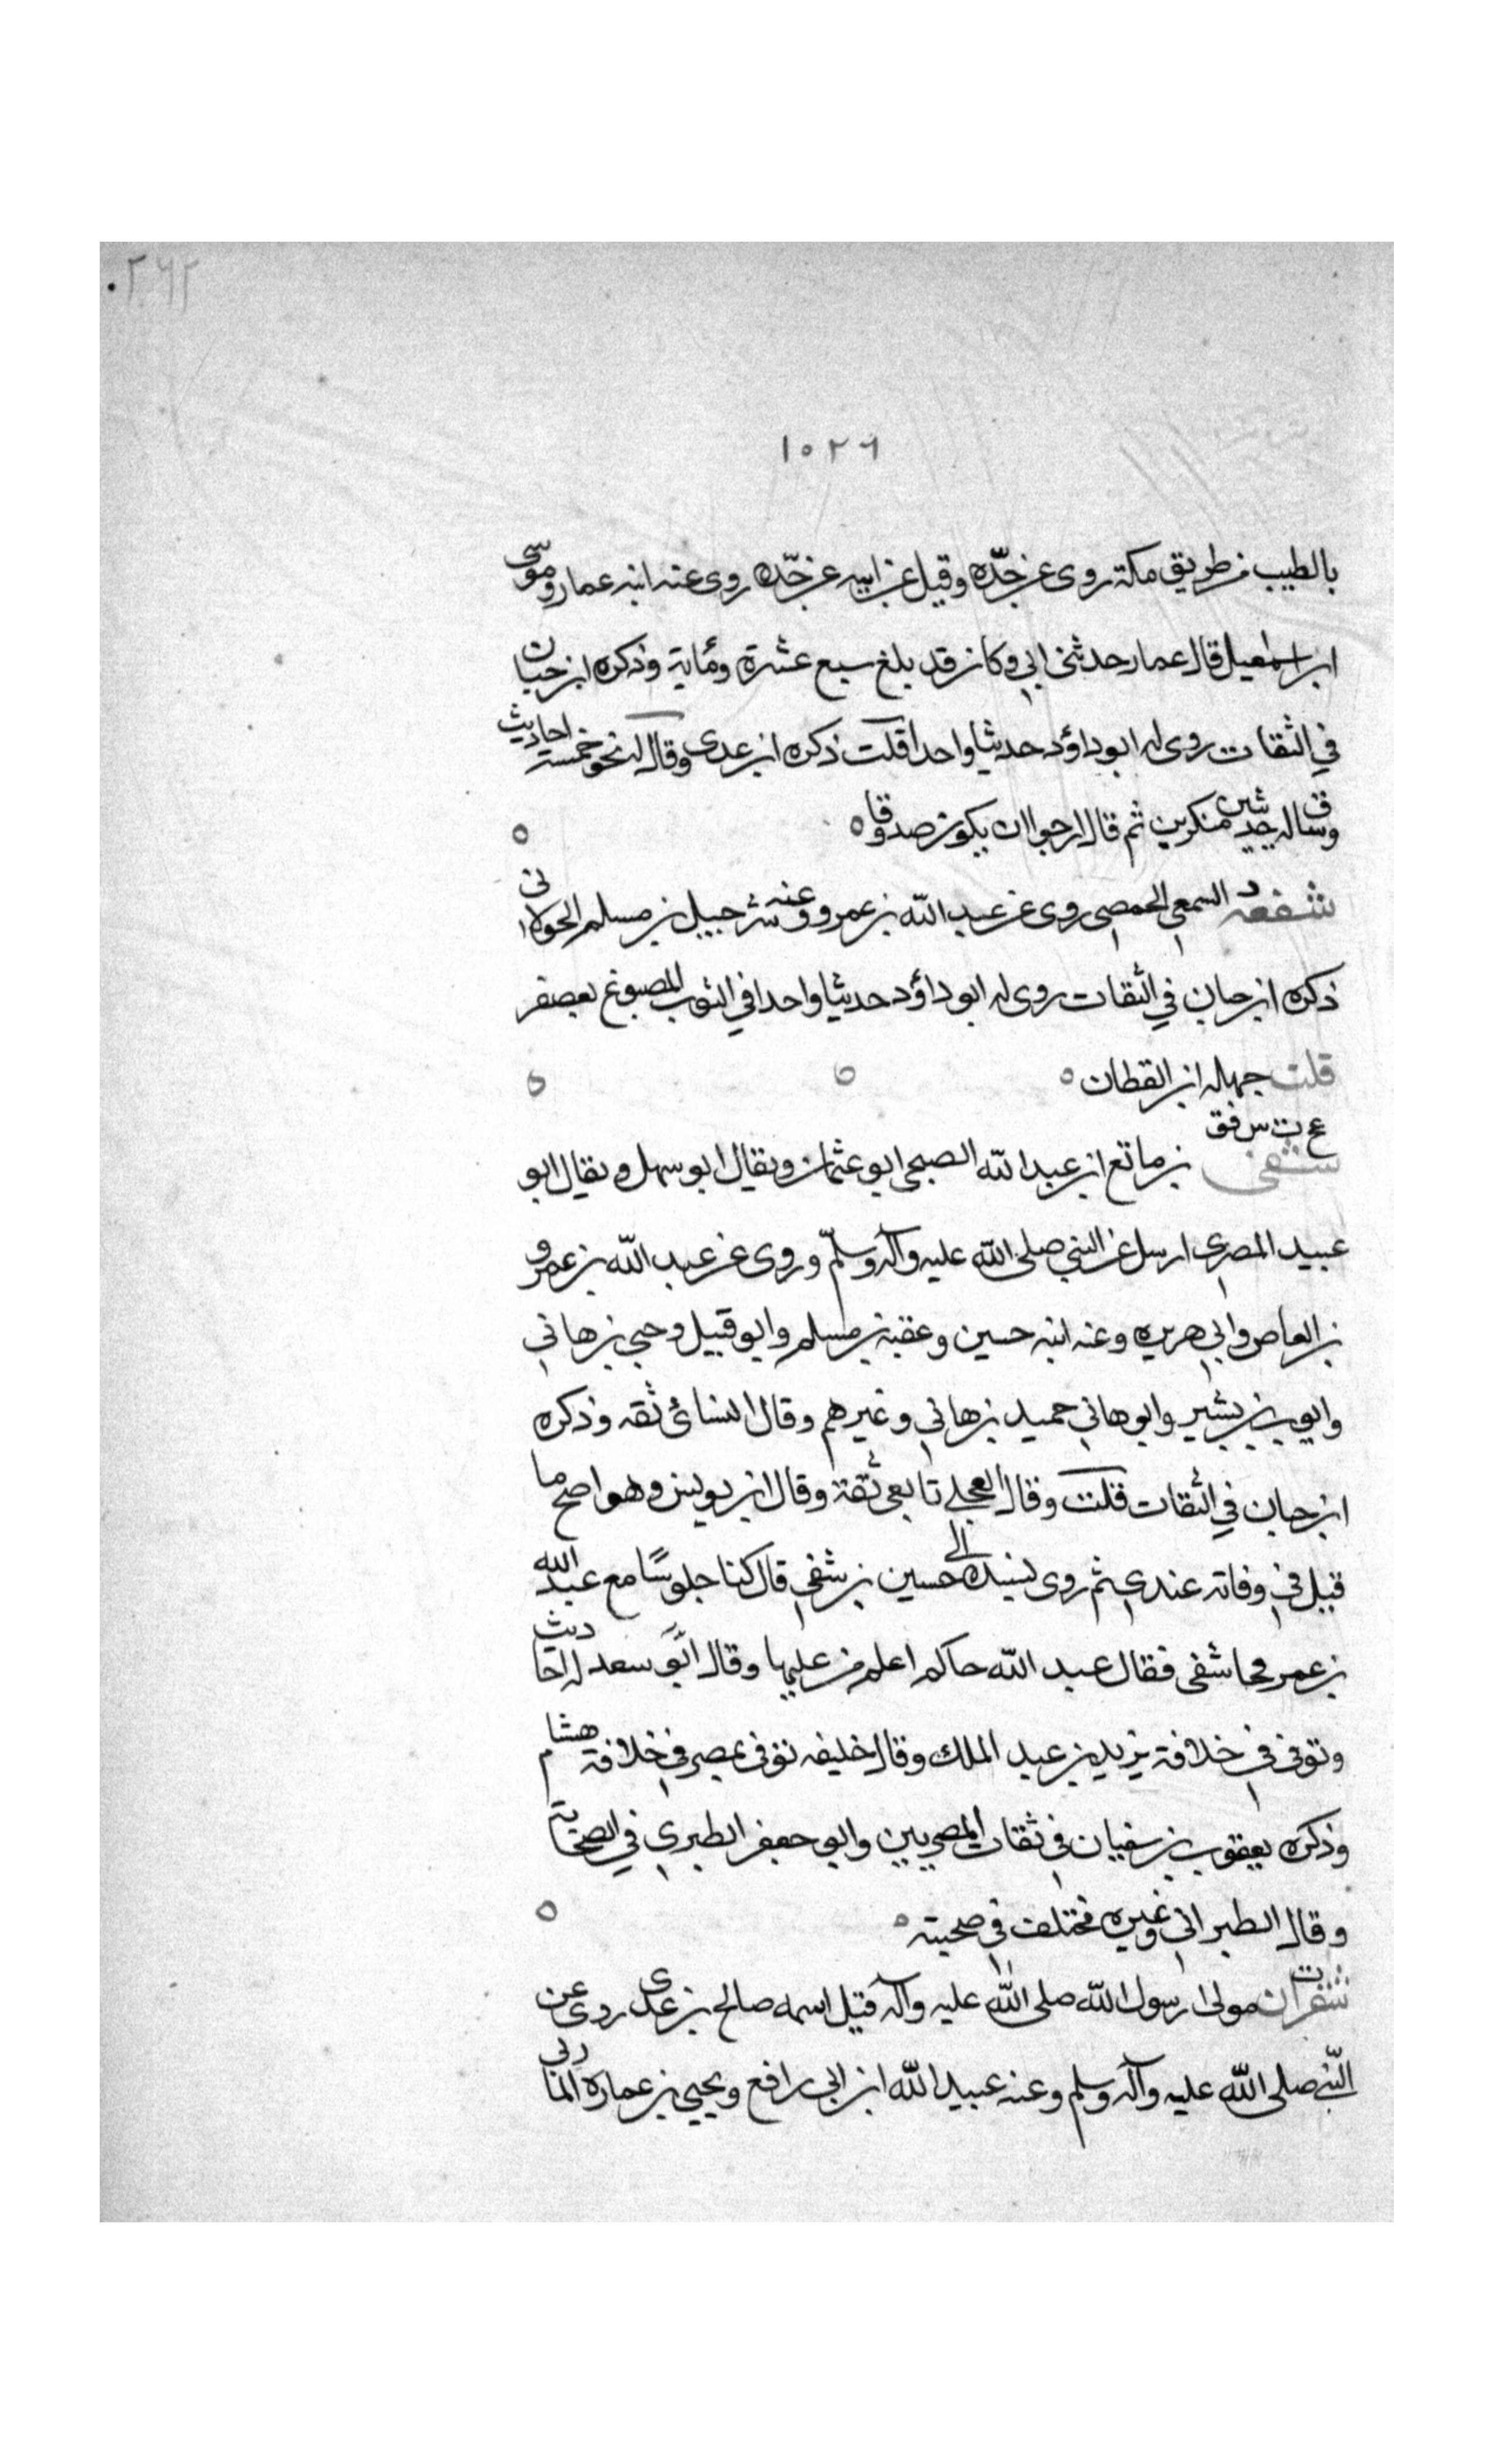 ٢٦٢
١٥٢٦
بالطيب من طريق مكة روى عن جدّه وقيل عن ابيه عن جدّه روى عنه ابنه عمار وموسى
ابن اسمعيل قال عمار حدثنى ابي وكان قد بلغ سبع عشرة ومأية وذكره ابن حبان
في الثقات روى له ابو داؤد حديثا واحدا قلت ذكره ابن عدى وقال له نحو خمسة احاديث
وساق له حديثين منكرين ثم قال ارجو ان يكون صدوقا
د
شفعة السمعي الحمصي روى عن عبد الله بن عمرو وعنه شرحبيل بن مسلم الخولانى
ذكره ابن حبان في الثقات روى له ابو داؤد حديثا واحدا في الثوب المصبوغ بعصفر
قلت جهله ابن القطان
عخ ت س فق
شفى بن ماتع ابن عبد الله الصبحى ابو عثمان ويقال ابو سهل ويقال ابو
عبيد المصري ارسل عن النبي صلى الله عليه وآله وسلّم وروى عن عبد الله بن عمرو
بن العاص وابي هريره وعنه ابنه حسين وعقبة بن مسلم وابو قبيل وحيى بن هاني
وايوب بن بشير وابو هاني حميد بن هاني وغيرهم وقال النسائ ثقه وذكره
ابن حبان في الثقات قلت وقال العجلي تابعى ثقة وقال ابن يونس وهو اصح ما
قيل في وفاته عندي ثم روى بسنده الى حسين بن شفي قال كنا جلوسًا مع عبد الله
بن عمر فجا شفى فقال عبد الله جاكم اعلم من عليها وقال ابو سعد له احاديث
وتوفى في خلافة يزيد بن عبد الملك وقال خليفه توفى بمصر في خلافة هشام
وذكره يعقوب بن سفيان في ثقات المصريين وابو جعفر الطبري في الصحابة
وقال الطبراني وغيره مختلف في صحبته
ت
شقران مولى رسول الله صلى الله عليه وآله قيل اسمه صالح بن عدى روى عن
النّبي صلى الله عليه وآله وسلم وعنه عبيد الله ابن ابى رافع ويحيى بن عمارة المازنى